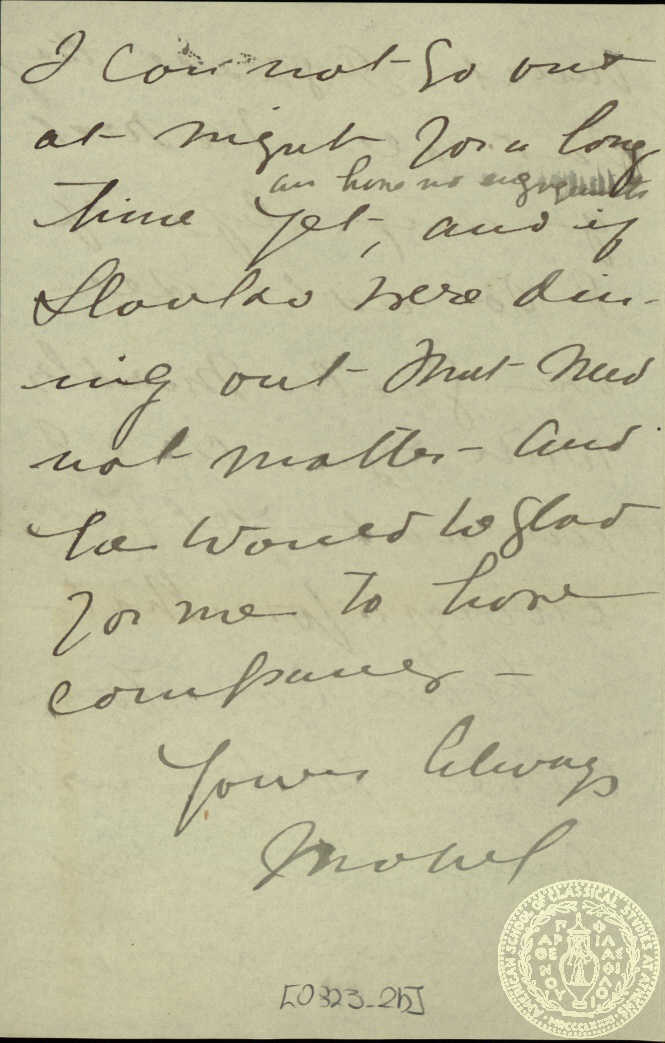 I can not go out
at night for a long
an have no engagements
time yet, and if
Slavko were din-
ing out that need
not matter - And
he would be glad
for me to have
company -
Yours Always
Mabel
[0323-2b]
AMERICAN SCHOOL OF CLASSICAL STUDIES AT ATHENS
ΠΑΡΘΕΝΟΥ ΦΙΛΑΣ ΦΙΛΟΥ
MDCCCLXXXI